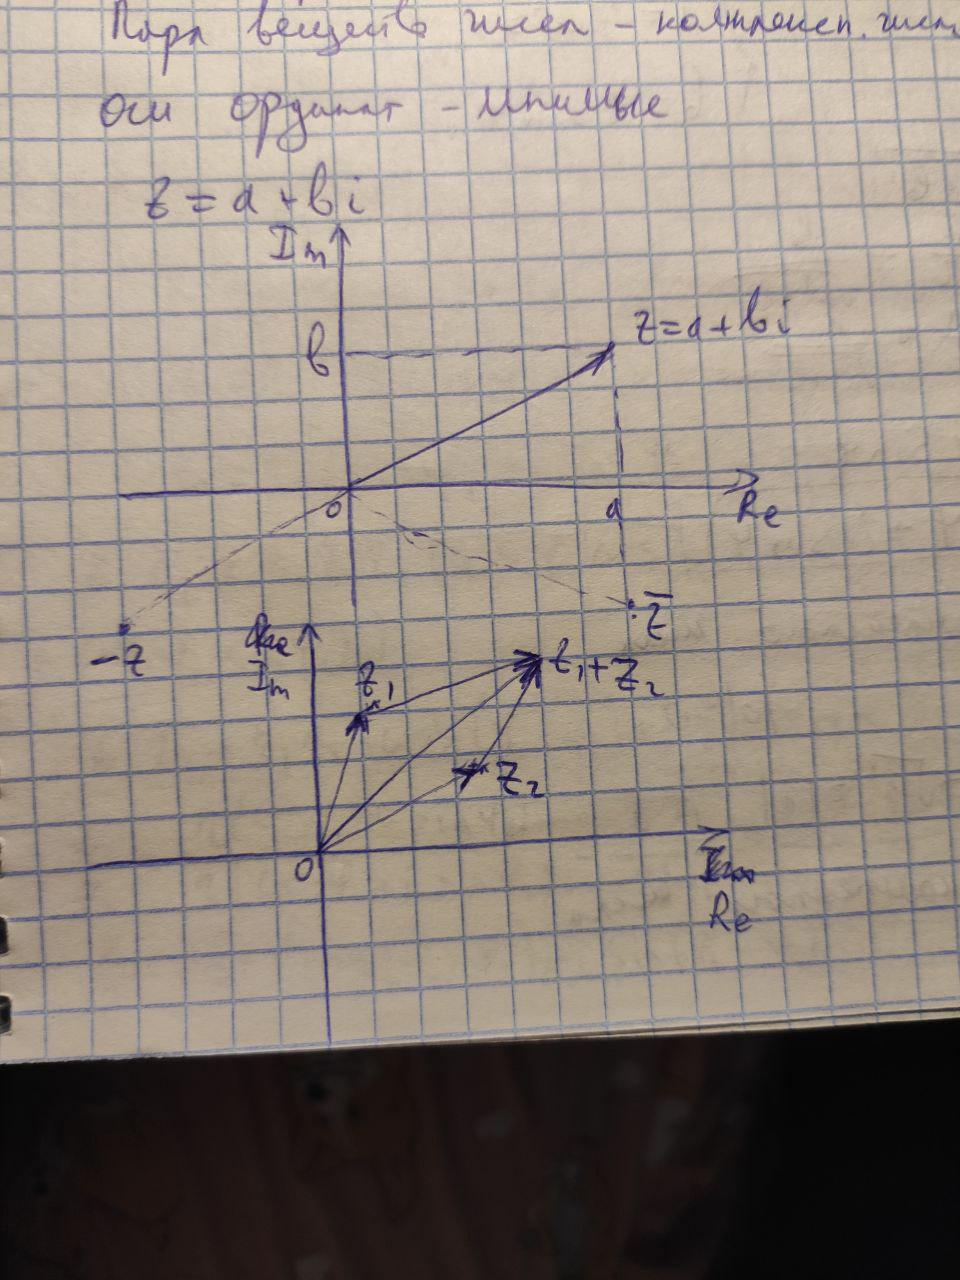 Пара веществ чисел - комплексн. чис
оси ординат - мнимые
z = a + bi
Im
b
z = a + bi
0
a
Re
-z
z̅
Im
z₁
z₁ + z₂
z₂
0
Re